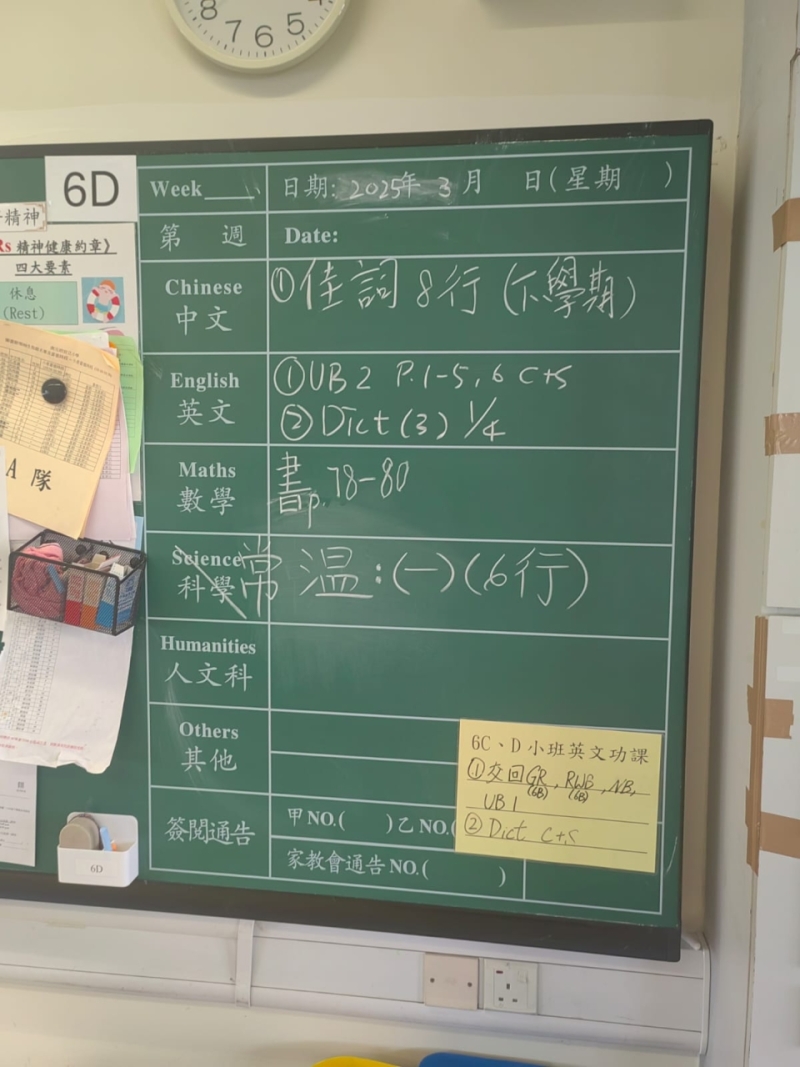 8 7 6 5 4
6D
精神
Rs 精神健康約章》
四大要素
休息
(Rest)
A 隊
Week____ 日期: 2025年 3月 日(星期 )
第 週 Date:
Chinese
中文
①佳詞 8行 (下學期)
English
英文
①UB2 P.1-5, 6 C+S
②Dict (3) 1/4
Maths
數學
書p. 78-80
Science
科學
常温:(一)(6行)
Humanities
人文科
Others
其他
簽閱通告
甲NO.( )乙NO.(
家教會通告NO.( )
6C、D小班英文功課
①交回GR, RWB, NB,
(6B) (6B)
UB1
②Dict C+S
6D